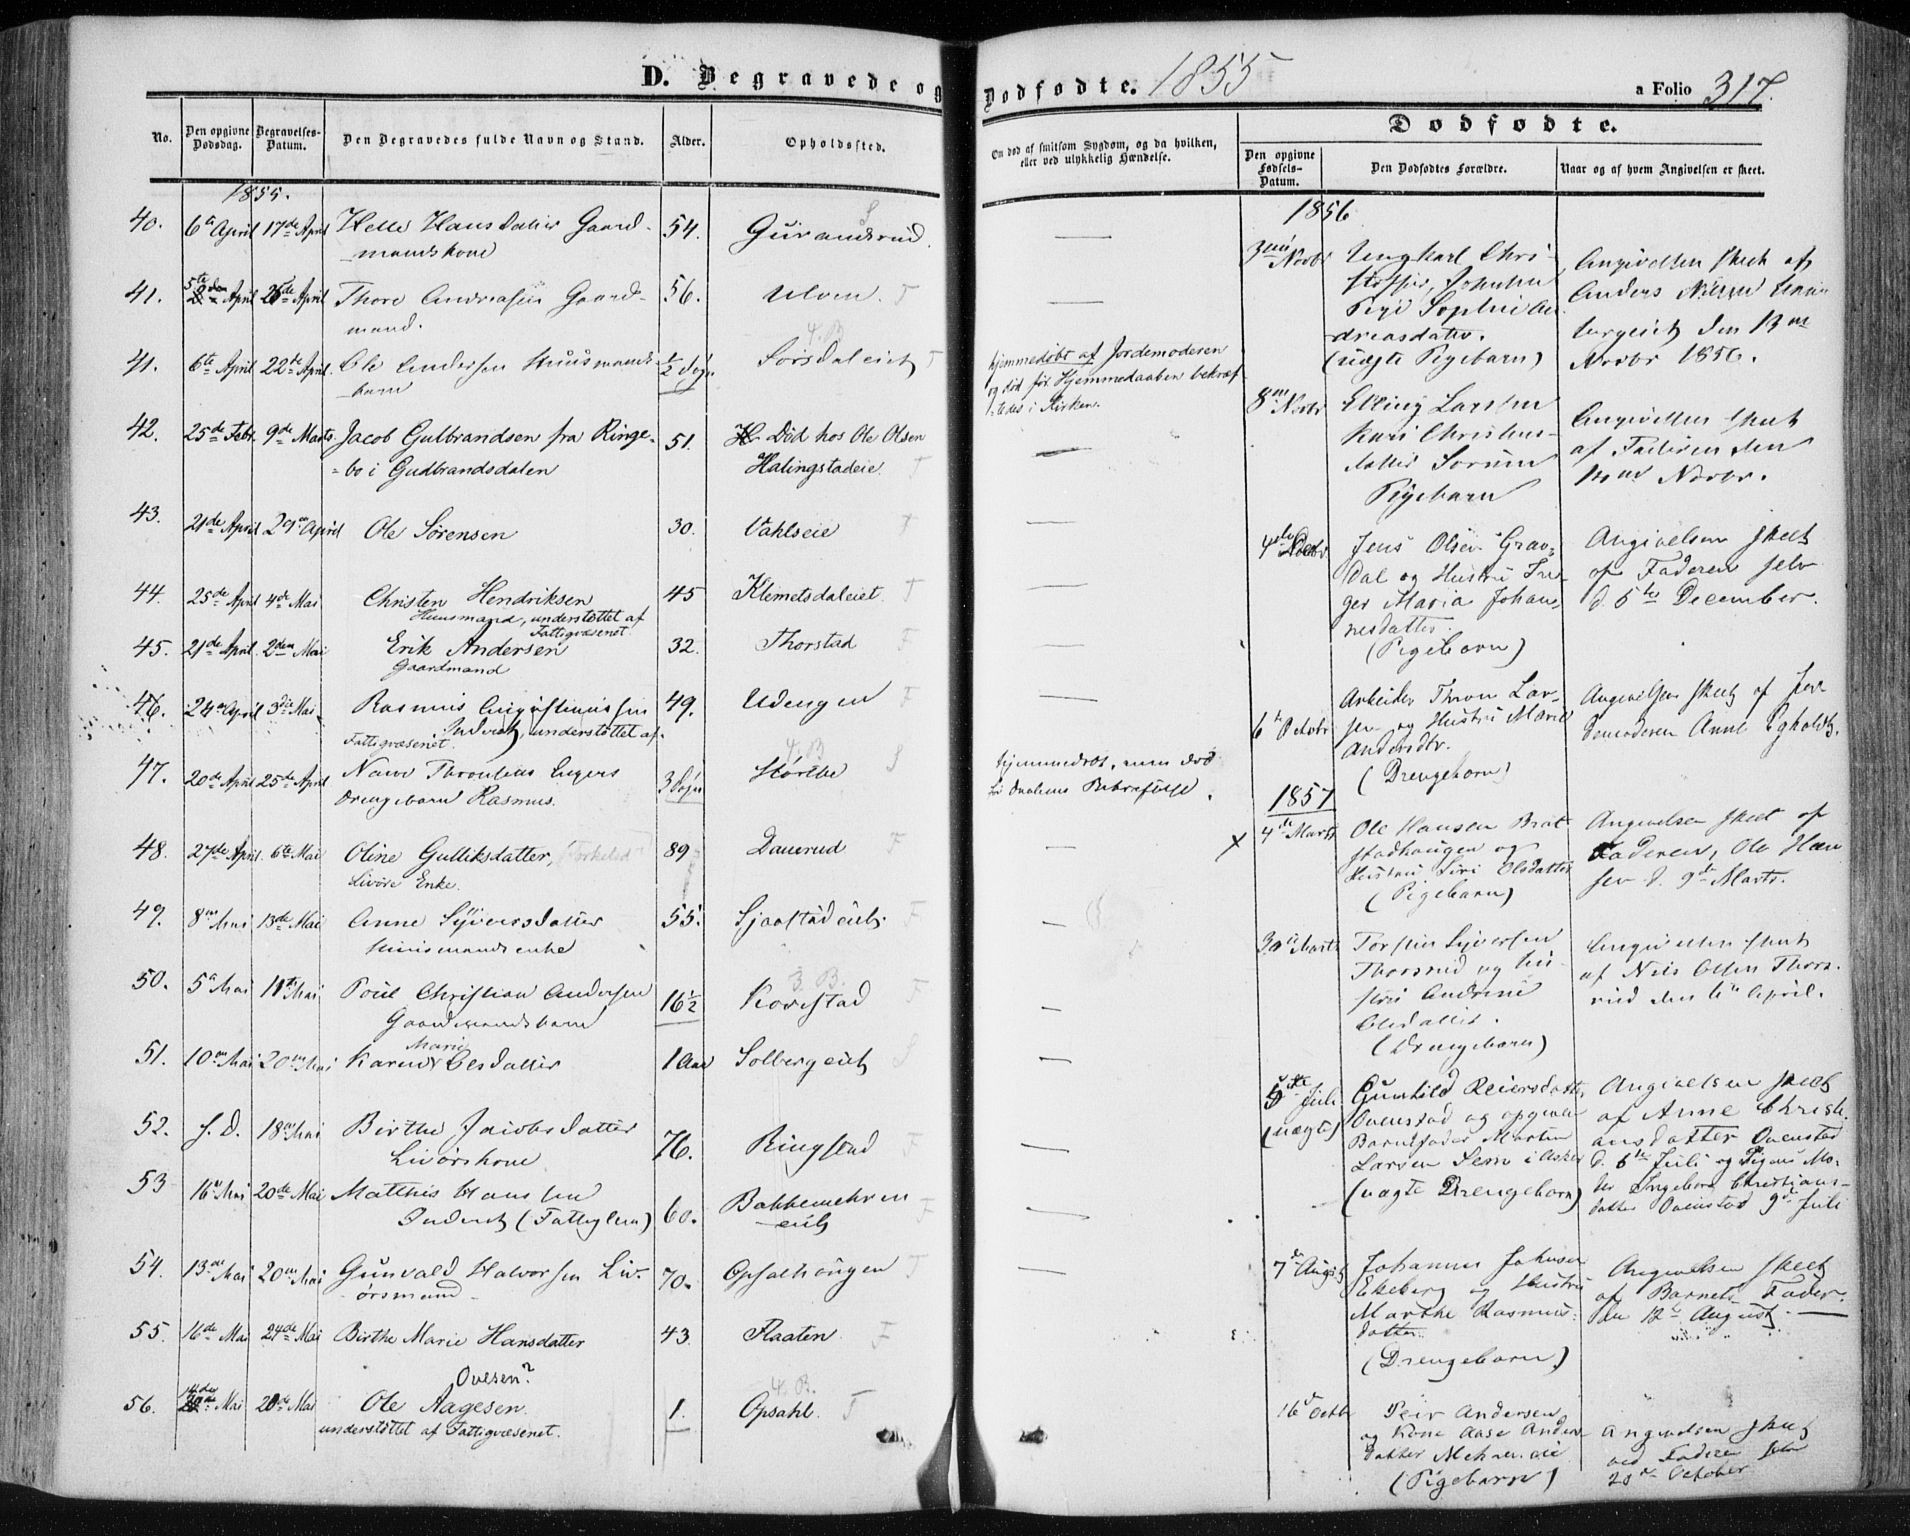 D. Begravede og Dødfødte. 1855
a Folio 317.
No.
Den opgivne Dødsdag.
Begravelses-Datum.
Den Begravedes fulde Navn og Stand.
Alder.
Opholdssted.
Om død af smitsom Sygdom, og da hvilken, eller ved ulykkelig Hændelse.
Dødfødte.
Den opgivne Fødsels-Datum.
Den Dødfødtes Forældre.
Naar og af hvem Angivelsen er skeet.
1855.
40. 6te April 17de April Helle Hansdatter Gaard-
mandskone 54. Gurandsrud. S —
41. 5te April 26de April Thore Andreasen Gaard-
mand. 56. Ulven. T —
4. B
41. 6te April 22de April Ole Andersen Huusmands-
barn ½ Døgn Sørsdaleiet T
hjemmedøbt af Jordemoderen
og død før Hjemmedaaben bekræf
-tedes i Kirken.
42. 25de Febr. 9de Marts Jacob Gulbrandsen fra Ringe-
=bo i Gudbrandsdalen 51. Død hos Ole Olsen
Halingstadeie. T —
43. 21de April 29de April Ole Sørensen 30. Vahlseie T —
44. 25de April 4de Mai Christen Hendriksen
Huusmand, understøttet af
Fattigvæsenet. 45 Klemetsdaleiet. T —
45. 21de April 2den Mai Erik Andersen
Gaardmand 32. Thorstad F —
46. 24de April 3die Mai Rasmus Augustinussen
Inderst, understøttet af
Fattigvæsenet. 49. Udengen F —
4. B
47. 20de April 25de April Navn Thronsens Engers
Drengebarn Rasmus. 3 Døgn Hørtbe S
hjemmedøbt, men død
før Daabens Bekræftelse.
48. 27de April 6te Mai Oline Gulliksdatter,
Livøre Enke. 89 Dauerud F —
49. 8de Mai 13de Mai Anne Syversdatter
Huusmandsenke 55. Sjaastadeiet. F —
3. B.
50. 5te Mai 11te Mai Poul Christian Andersen
Gaardmandsbarn 16½ Kovestad F —
Marie
51. 10de Mai 20de Mai Karen Olsdatter 1 Aar Solbergeiet S —
52. S. D. 18de Mai Birthe Jacobsdatter
Livørskone 76. Ringstad F —
53 16de Mai 20de Mai Matthis Hanssen
Inderst (Fattiglem) 60. Bakkemehren
eiet F —
54. 13de Mai 20de Mai Gunvald Halvorsen Liv-
ørsmand 70. Opsalhougen T —
55. 16de Mai 24de Mai Birthe Marie Hansdatter 43 Flaaten. F
Ovesen?
4. B.
56. 14de Mai 20de Mai Ole Aagesen.
understøttet af Fattigvæsenet. 1. Opsahl. T
1856
3die Novbr
Johanne
Pige Sophie An-
dreasdatter.
(uægte Pigebarn)
Angivelsen skeet af
Anders Nilsen
den 13de
Novbr 1856.
8de Novbr Elling Larssen
Kari Christens-
datter Sorum
Pigebarn
Angivelsen skeet
af Faderen den
Novbr.
4de Jens Olsen Grav-
dal og Hustru In-
ger Maria Johan-
nesdatter.
(Pigebarn)
Angivelsen skeet
af Faderen selv
d. 5te December.
6te Octobr Arbeider Thron Lar-
sen og Hustru Marie
Andersdtr.
(Drengebarn)
Angivelsen skeet af Jor-
demoderen Anne Egholdt.
1857
x 4de Marts Ole Hansen Brat-
stadhaugen og
Hustru Siri Olsdatter
(Pigebarn)
Angivelsen skeet af
Faderen, Ole Han
sen d. 9de Marts.
30te Marts Torsten Syversen
Thorsrud og Hu-
stru Andrine
Olsdatter.
(Drengebarn)
Angivelsen skeet
af Nils Olsen Thors-
rud den 6te April.
5te Juli
(uægte)
Gunhild Reiersdatter
Ovenstad og opgiven
Barnefader Martin
Larsen Sem i Asker
(uægte Drengebarn)
Angivelsen skeet
af Anne Christi-
ansdatter Ovenstad
d. 6te Juli og Pigens Mo-
der Ingeborg Christians-
datter Ovenstad 9de Juli
7de Augst Johannes Johnsen
Ekeberg og Hustru
Marthe Rasmus-
datter.
(Drengebarn)
Angivelsen skeet
af Barnets Fader
den 12te August. —
16de Octbr Peir Andersen
og Kone Aase Anders-
datter Mehreneie
(Pigebarn)
Angivelsen skeet
ved Faderen selv
20de October